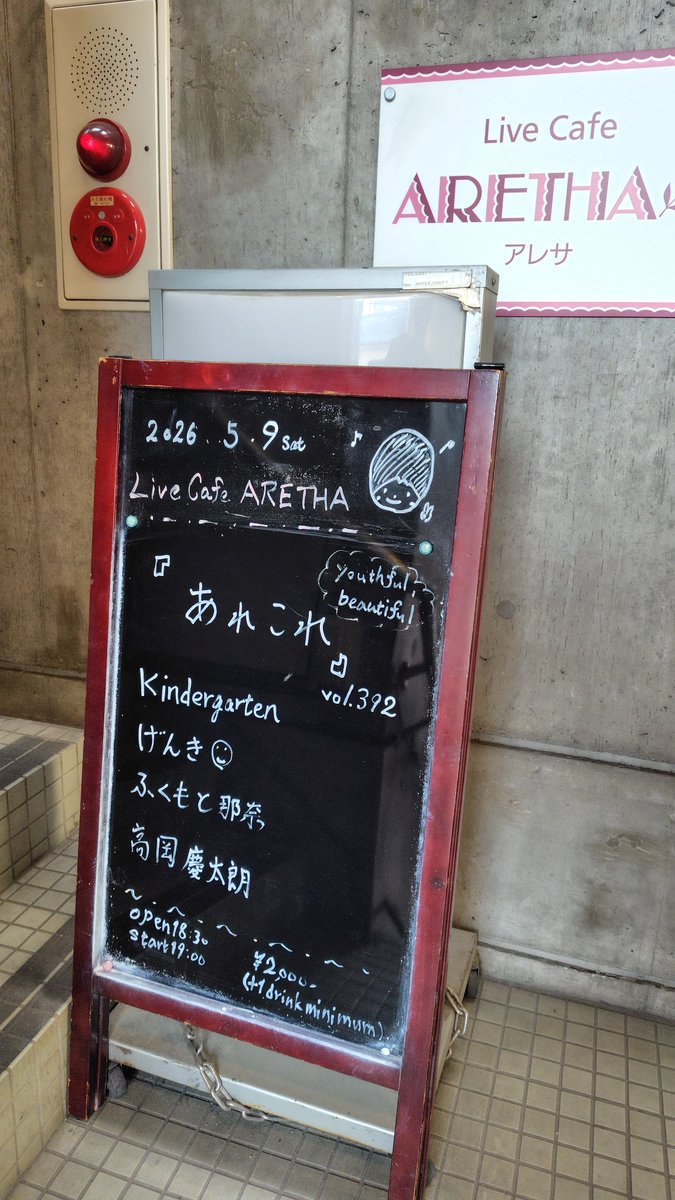 Live Cafe
ARETHA
アレサ
2026. 5. 9 Sat
Live Cafe ARETHA
youthful,
beautiful
『あれこれ』
vol.392
Kindergarten
げんき
ふくもと那奈
高岡慶太朗
open 18:30
start 19:00
¥2000-
(+1 drink minimum)